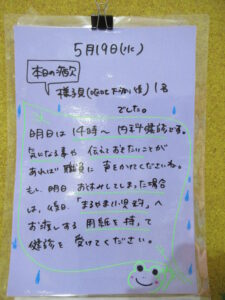 5月19日(水)
本日の病欠
様子見(嘔吐、下痢、熱) 1名
でした。
明日は14時〜 内科健診です。
気になる事や 伝えておきたいことが
あれば 職員に 声をかけてくださいね。
もし、明日 お休みしてしまった場合
は、後日、「まるやま小児科」へ
お渡しする 用紙を持って
健診を 受けてください。